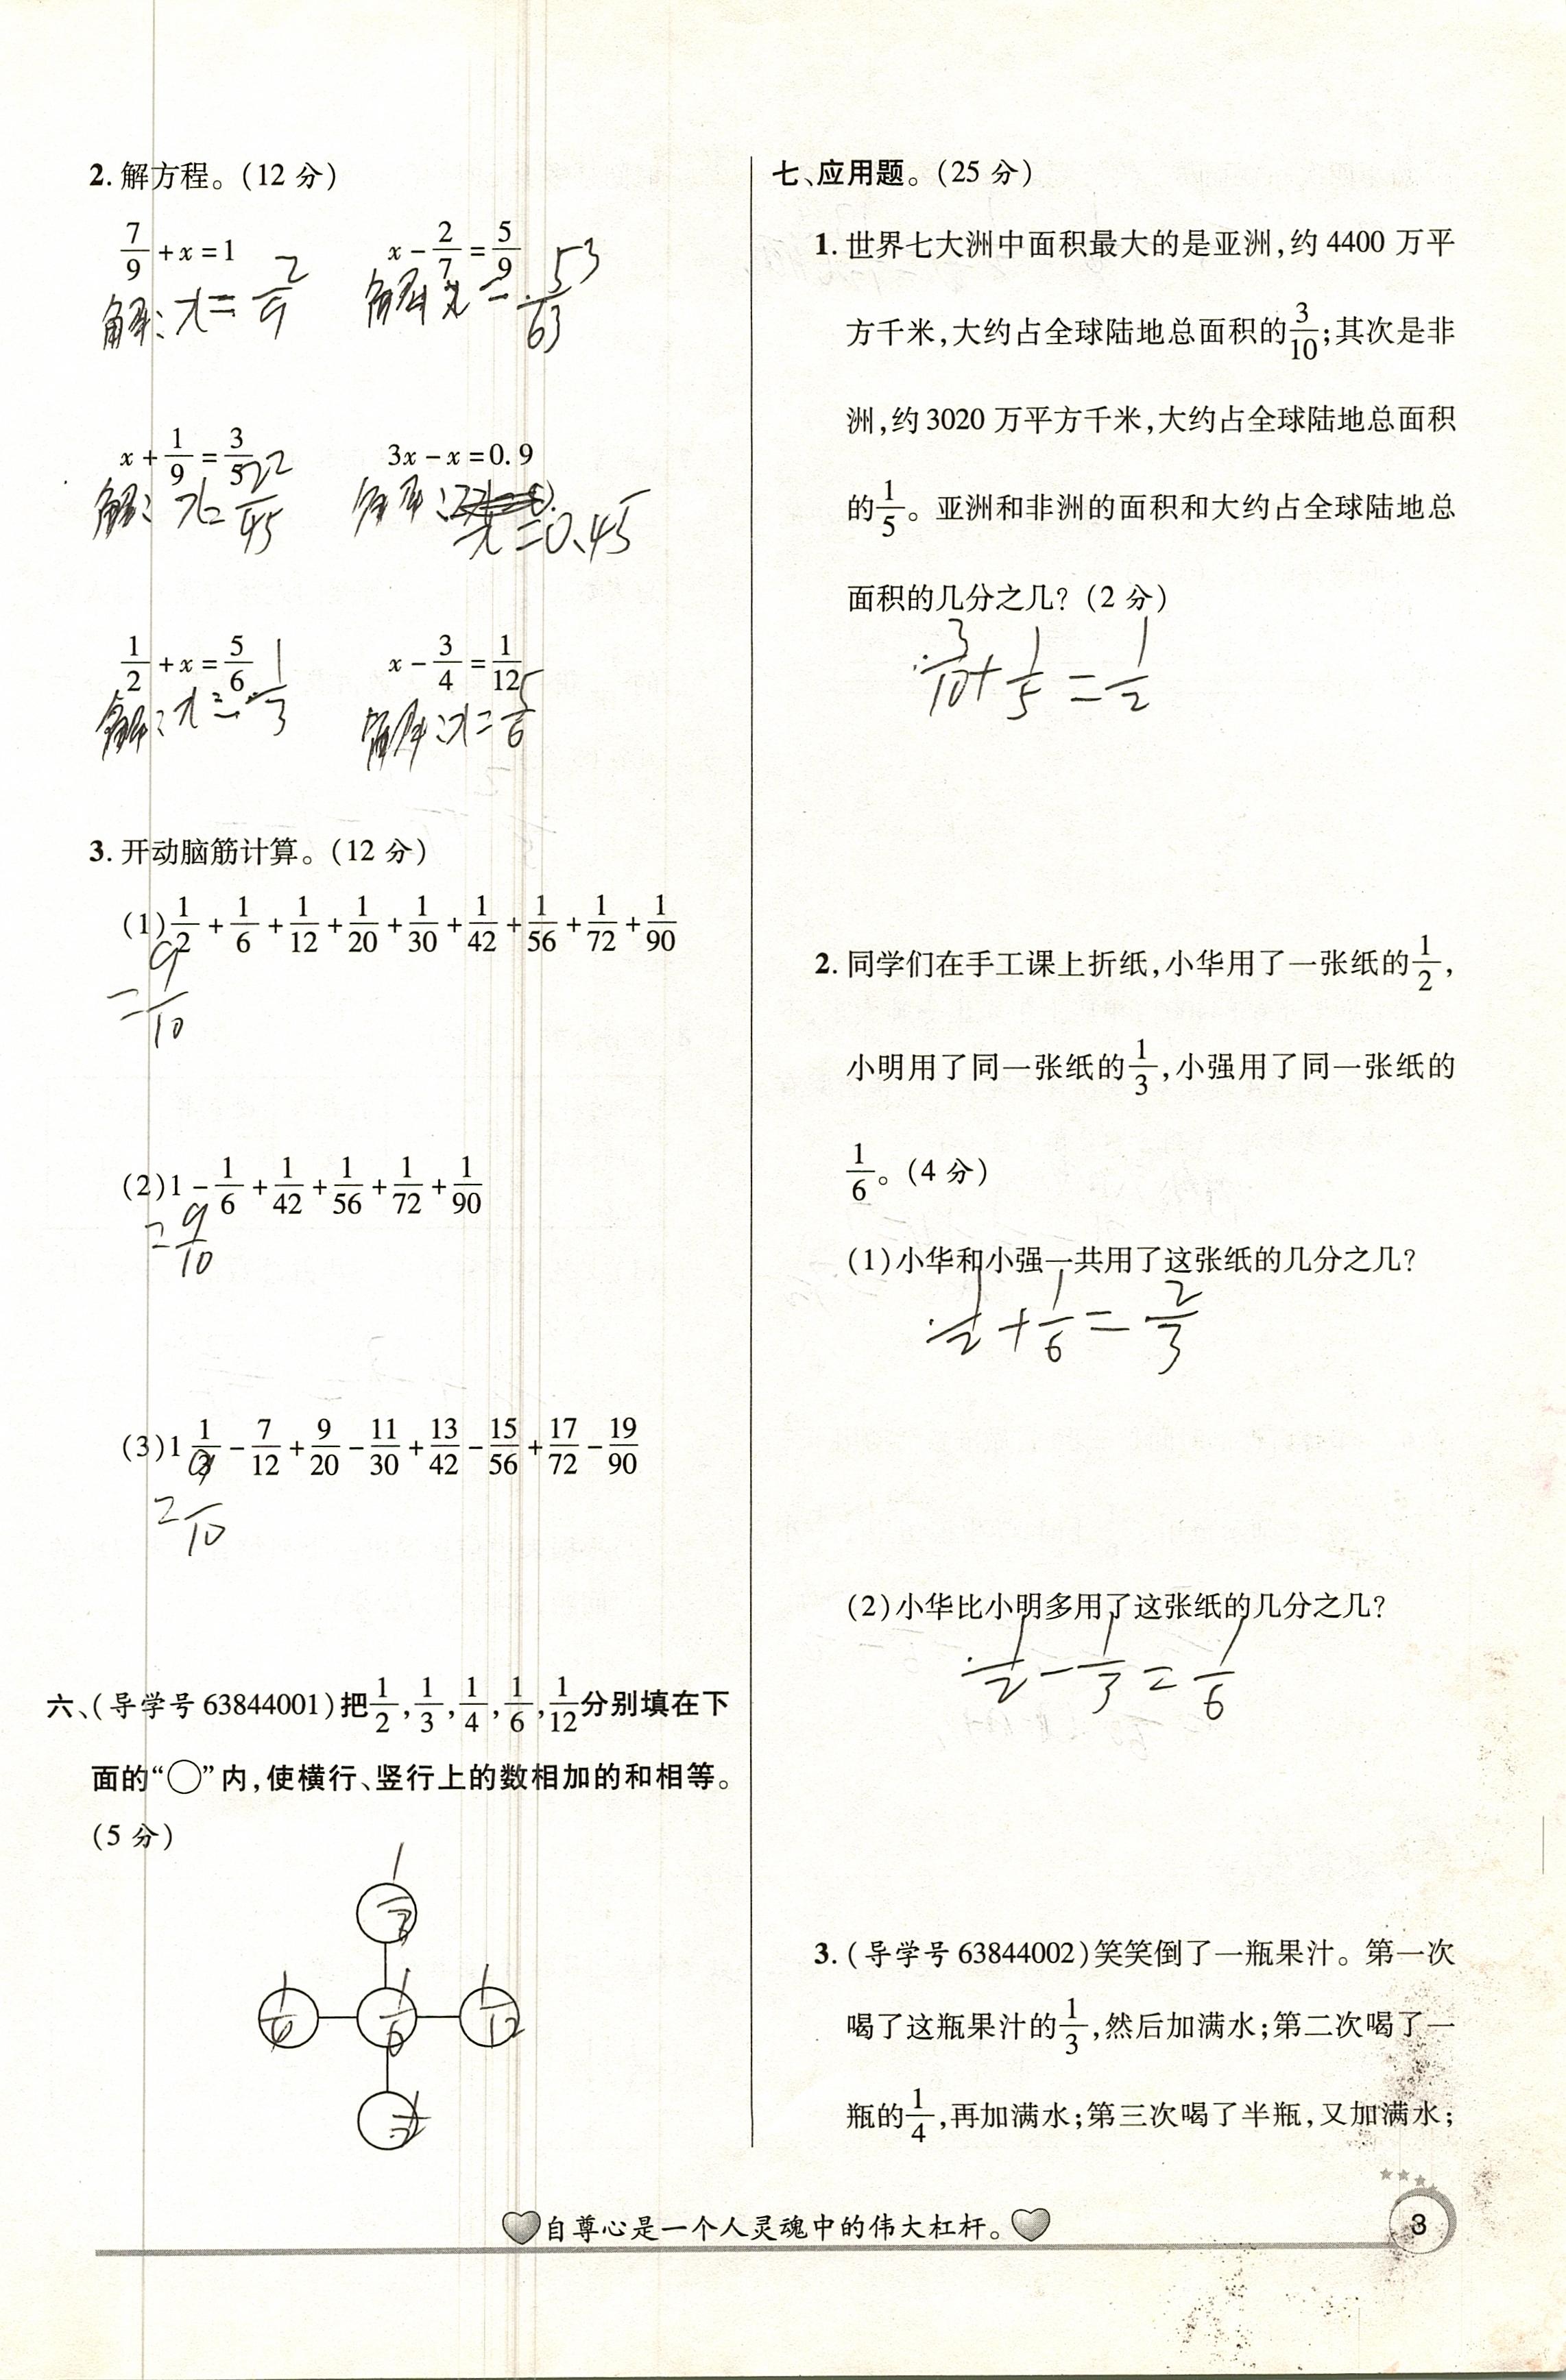 2. 解方程。(12 分)
7/9 + x = 1    x - 2/7 = 5/9
解: x = 2/9    解: x = 53/63
x + 1/9 = 3/5    3x - x = 0.9
解: x = 22/45    解:
x = 0.45
1/2 + x = 5/6    x - 3/4 = 1/12
解: x = 1/3    解: x = 5/6
3. 开动脑筋计算。(12 分)
(1) 1/2 + 1/6 + 1/12 + 1/20 + 1/30 + 1/42 + 1/56 + 1/72 + 1/90
= 9/10
(2) 1 - 1/6 + 1/42 + 1/56 + 1/72 + 1/90
= 9/10
(3) 1 1/3 - 7/12 + 9/20 - 11/30 + 13/42 - 15/56 + 17/72 - 19/90
= 9/10
六、(导学号 63844001)把1/2,1/3,1/4,1/6,1/12分别填在下
面的“○”内,使横行、竖行上的数相加的和相等。
(5 分)
1/3
1/6 1/12
七、应用题。(25 分)
1. 世界七大洲中面积最大的是亚洲,约 4400 万平
方千米,大约占全球陆地总面积的3/10;其次是非
洲,约 3020 万平方千米,大约占全球陆地总面积
的1/5。亚洲和非洲的面积和大约占全球陆地总
面积的几分之几? (2 分)
3/10 + 1/5 = 1/2
2. 同学们在手工课上折纸,小华用了一张纸的1/2,
小明用了同一张纸的1/3,小强用了同一张纸的
1/6。(4 分)
(1)小华和小强一共用了这张纸的几分之几?
1/2 + 1/6 = 2/3
(2)小华比小明多用了这张纸的几分之几?
1/2 - 1/3 = 1/6
3. (导学号 63844002)笑笑倒了一瓶果汁。第一次
喝了这瓶果汁的1/3,然后加满水;第二次喝了一
瓶的1/4,再加满水;第三次喝了半瓶,又加满水;
自尊心是一个人灵魂中的伟大杠杆。
3